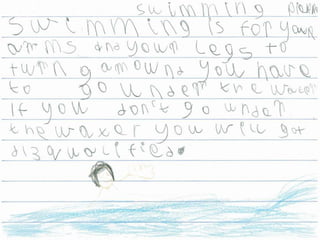 swimming
Swimming is for your
arms and your legs to
turn around you have
to go under the water
if you don't go under
the water you will got
disqualified.